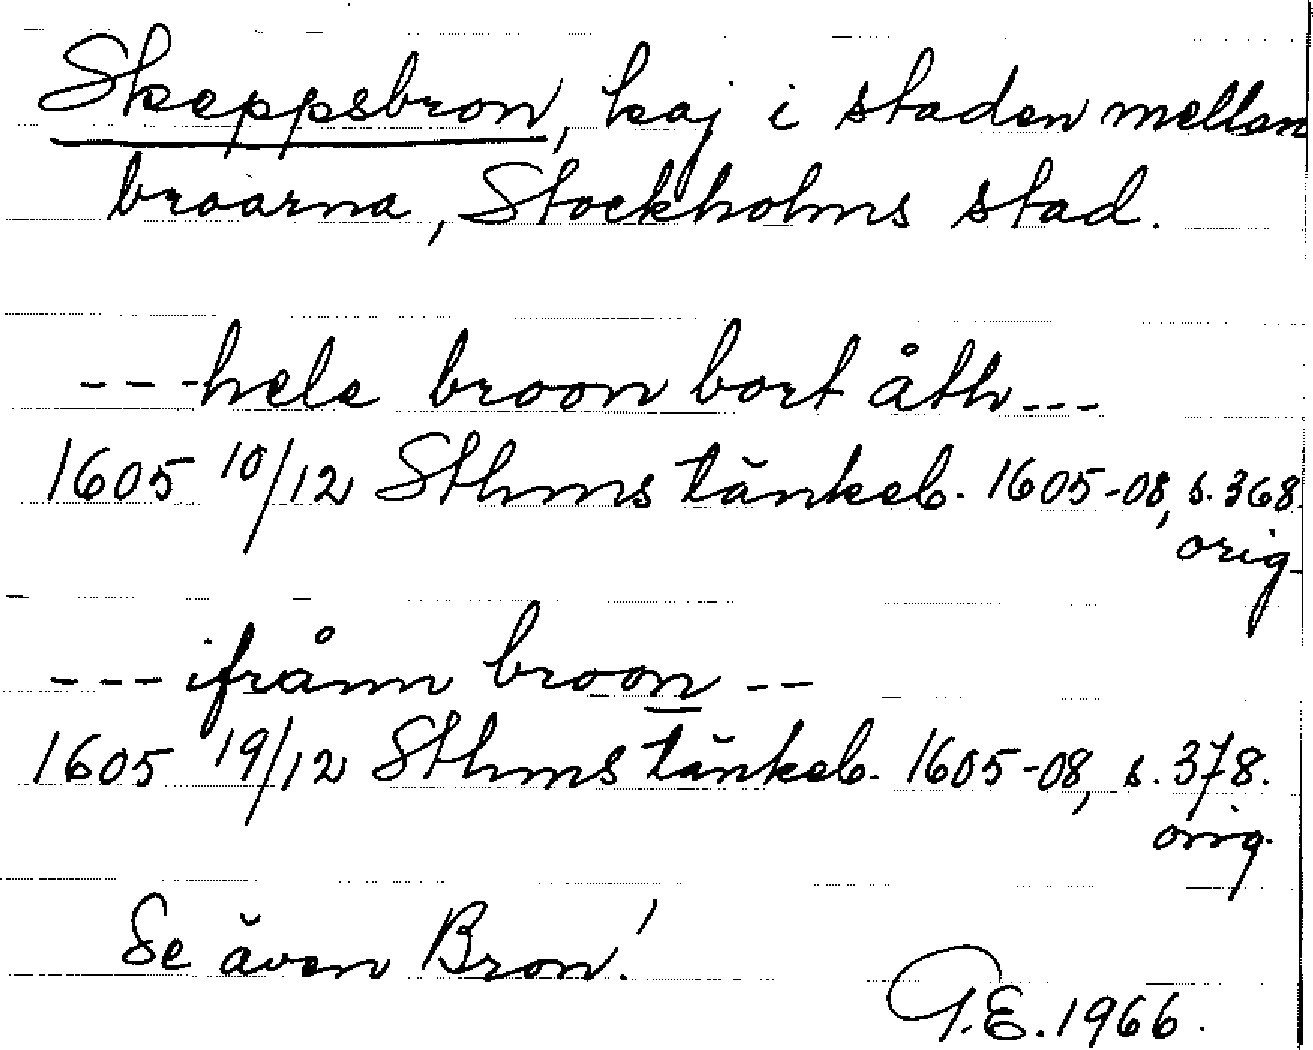 Skeppsbron, kaj i staden mellan
broarna, Stockholms stad.
---hele broon bort åth---
1605 10/12 Sthms tänkeb. 1605-08, s. 368.
orig.
---ifrånn broon --
1605 19/12 Sthms tänkeb. 1605-08, s. 378.
orig.
Se även Bron!
G.E. 1966.